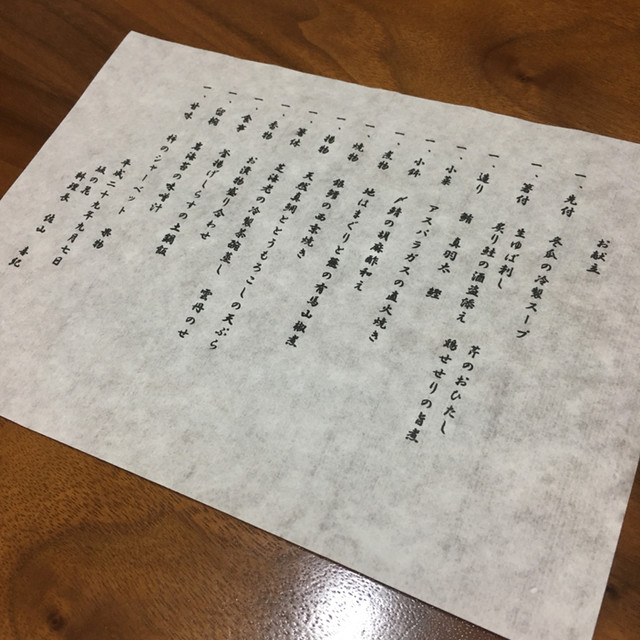 お献立
一、先付 冬瓜の冷製スープ
一、箸付 生ゆば刺し
炙り鮭の酒盗添え 芹のおひたし
一、造り 鯖 真羽太 鰹 鶏せせりの旨煮
一、小菜 アスパラガスの直火焼き
一、小鉢 〆鯖の胡麻酢和え
一、煮物 地はまぐりと蕪の有馬山椒煮
一、焼物 銀鱈の西京焼き
一、揚物 天然真鯛ととうもろこしの天ぷら
一、箸休 生海老の冷製茶碗蒸し 雲丹のせ
一、香物 お漬物盛り合わせ
一、食事 釜揚げしらすの土鍋飯
一、留椀 青海苔の味噌汁
一、甘味 柿のシーベット 果物
平成二十九年九月七日
料理長 佐山